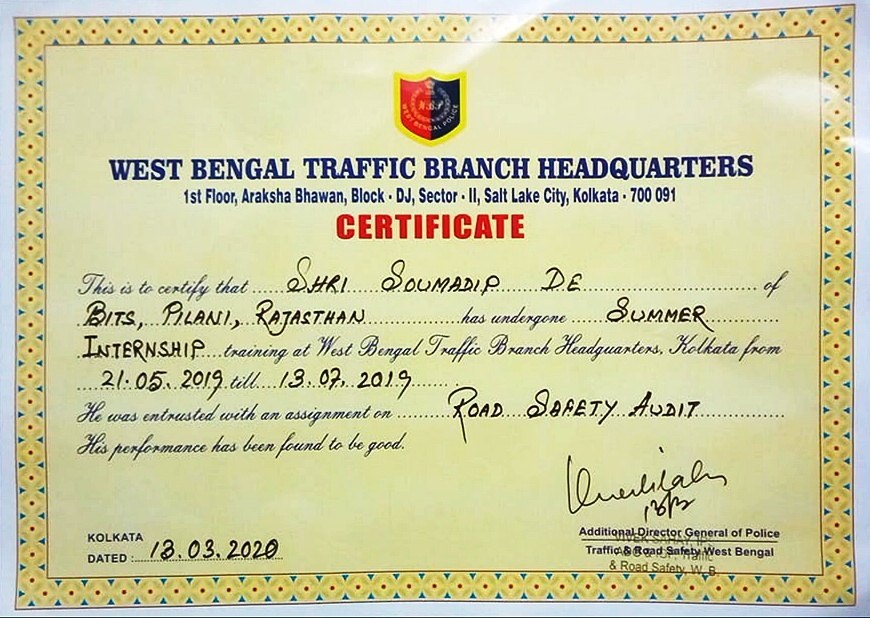 W.B.P
WEST BENGAL POLICE
WEST BENGAL TRAFFIC BRANCH HEADQUARTERS
1st Floor, Araksha Bhawan, Block - DJ, Sector - II, Salt Lake City, Kolkata - 700 091
CERTIFICATE
This is to certify that SHRI SOUMADIP DE of
BITS, PILANI, RAJASTHAN has undergone SUMMER
INTERNSHIP training at West Bengal Traffic Branch Headquarters, Kolkata from
21.05.2019 till 13.07.2019.
He was entrusted with an assignment on ROAD SAFETY AUDIT
His performance has been found to be good.
13/3
KOLKATA
DATED : 13.03.2020
Additional Director General of Police
Traffic & Road Safety West Bengal
& Road Safety, W. B.